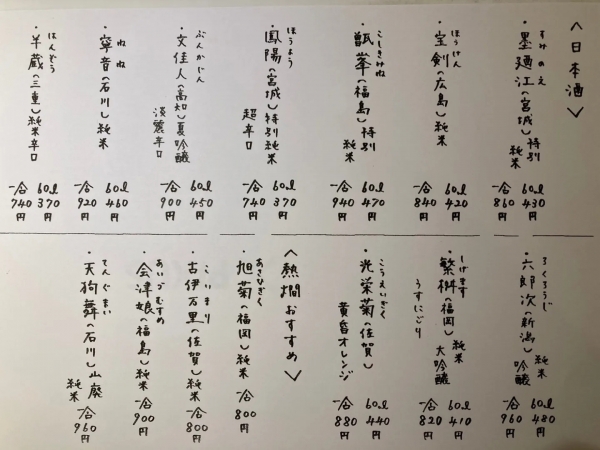 〈日本酒〉
すみのえ
・墨廼江(宮城)特別
純米
60ml 430円
一合 860円
ほうけん
・宝剣(広島)純米
60ml 420円
一合 840円
こしきみね
・甑峯(福島)特別
純米
60ml 470円
一合 940円
ほうよう
・鳳陽(宮城)特別純米
超辛口
60ml 370円
一合 740円
ぶんかじん
・文佳人(高知)夏吟醸
淡麗辛口
60ml 450円
一合 900円
ねね
・寧音(石川)純米
60ml 460円
一合 920円
はんぞう
・半蔵(三重)純米辛口
60ml 370円
一合 740円
ろくろうじ
・六郎次(新潟)純米
吟醸
60ml 480円
一合 960円
しげます
・繁桝(福岡)純米
大吟醸
うすにごり
60ml 410円
一合 820円
こうえいぎく
・光栄菊(佐賀)
黄昏オレンジ
60ml 440円
一合 880円
〈熱燗おすすめ〉
あさひぎく
・旭菊(福岡)純米 一合 800円
こいまり
・古伊万里(佐賀)純米 一合 800円
あいづむすめ
・会津娘(福島)純米 一合 900円
てんぐまい
・天狗舞(石川)山廃
純米 一合 960円